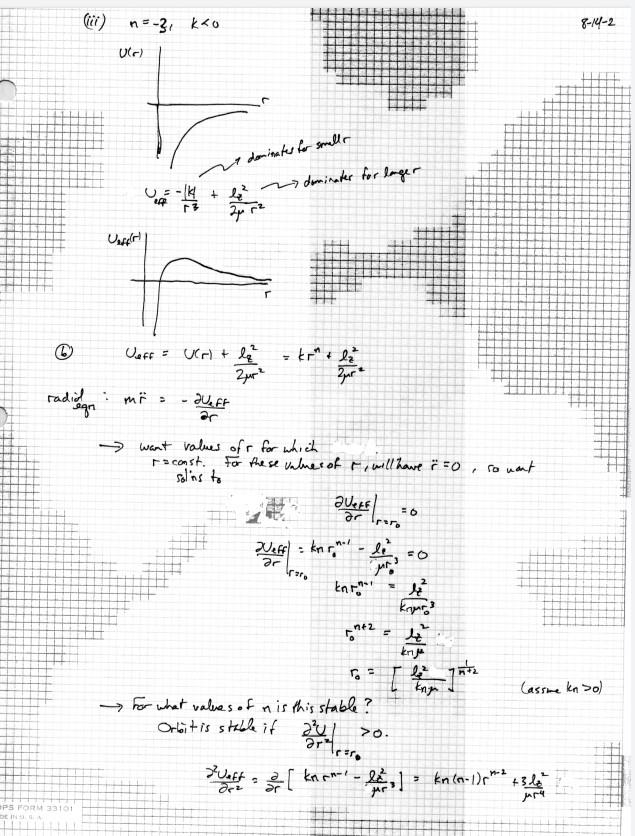 (iii) n = -3, k < 0
8-14-2
U(r)
r
dominates for small r
U_eff = -|k|/r³ + l_z²/2μr²
dominates for larger
U_eff(r)
r
(b) U_eff = U(r) + l_z²/2μr² = kr^n + l_z²/2μr²
radial eqn : m r̈ = - ∂U_eff/∂r
→ want values of r for which
r = const. For these values of r, will have r̈ = 0, so want
sol'ns to
∂U_eff/∂r |_{r=r₀} = 0
∂U_eff/∂r |_{r=r₀} = kn r₀^{n-1} - l_z²/μr₀³ = 0
kn r₀^{n-1} = l_z²/knμr₀³
r₀^{n+2} = l_z²/knμ
r₀ = [ l_z²/knμ ]^{1/(n+2)} (assume kn > 0)
→ For what values of n is this stable?
Orbit is stable if ∂²U/∂r² |_{r=r₀} > 0.
∂²U_eff/∂r² = ∂/∂r [ kn r^{n-1} - l_z²/μr³ ] = kn(n-1)r^{n-2} + 3l_z²/μr⁴
OPS FORM 33101
DE IN U. S. A.